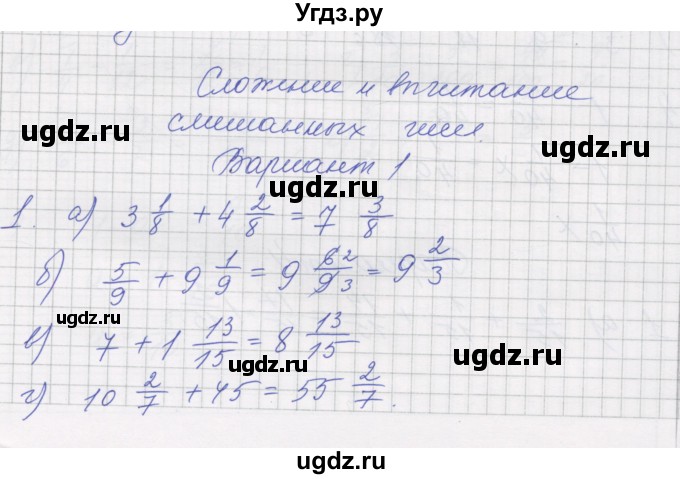 Угдз.ру
Сложение и вычитание
смешанных чисел.
Вариант 1
1. а) 3 1/8 + 4 2/8 = 7 3/8
б) 5/9 + 9 1/9 = 9 6/9 2/3 = 9 2/3
в) 7 + 1 13/15 = 8 13/15
г) 10 2/7 + 45 = 55 2/7.
ugdz.ru
ugdz.ru
ugdz.ru
ugdz.ru
ugdz.ru
ugdz.ru
ugdz.ru
ugdz.ru